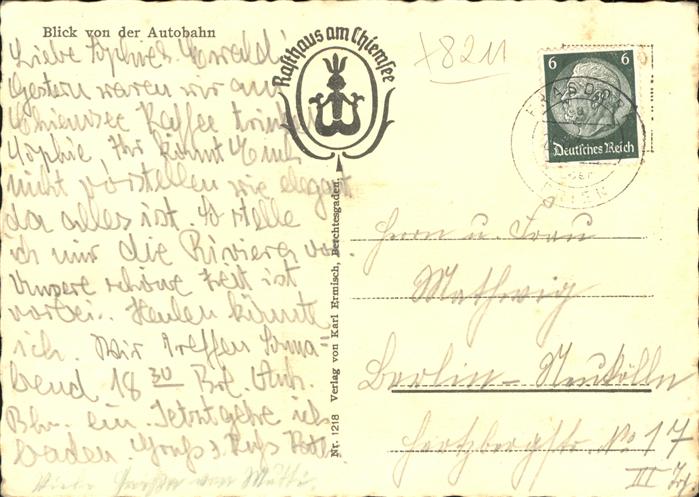 Blick von der Autobahn
Liebe Sophie u. Ewald!
Gestern waren wir am
Chiemsee Kaffee trinken
Sophie, Ihr könnt Euch
nicht vorstellen wie elegant
da alles ist. So stelle
ich mir die Riviera vor.
Unsere schöne Zeit ist
vorbei. Heulen könnte
ich. Wir treffen Sonna-
bend 18 30 Bln. Anh.
Bhv. ein. Jetzt gehe ich
baden. Gruß u. Kuß
Viele Grüße von Mutti.
Rasthaus am Chiemsee
Nr. 1218 Verlag von Karl Ermisch, Berchtesgaden.
+8211
6 6
Deutsches Reich
FRASDORF
Herrn u. Frau
Mathwig
Berlin-Neukölln
Hertzbergstr. No 17
III